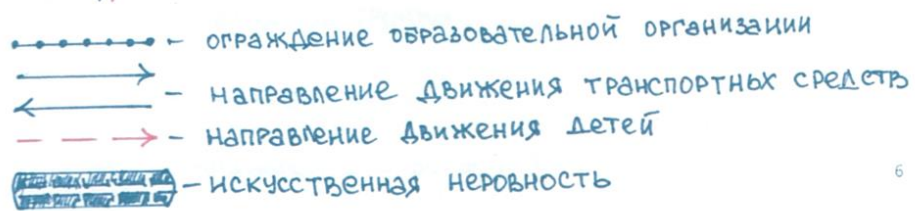 - ограждение образовательной организации
- направление движения транспортных средств
- направление движения детей
- искусственная неровность
6